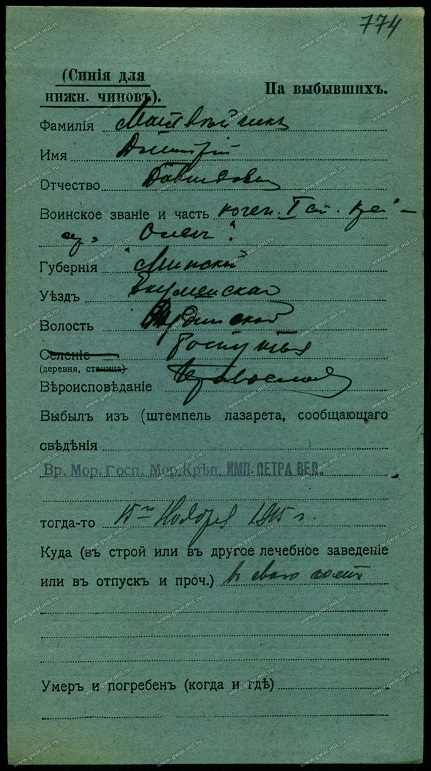 774
(Синія для
нижн. чиновъ).
На выбывшихъ.
Фамилія
Имя Дмитрій
Отчество Давидовичъ
Воинское званіе и часть кочег. I ст.
Губернія Минская
Уѣздъ Игуменской
Волость
Селеніе
(деревня, станица)
Вѣроисповѣданіе Православ
Выбылъ изъ (штемпель лазарета, сообщающаго
свѣдѣнія
Вр. Мор. Госп. Мор. Крѣп. ИМП. ПЕТРА ВЕЛ.
тогда-то 15го Ноября 1915 г.
Куда (въ строй или въ другое лечебное заведеніе
или въ отпускъ и проч.) въ свою
Умеръ и погребенъ (когда и гдѣ)
www.gwar.mil.ru